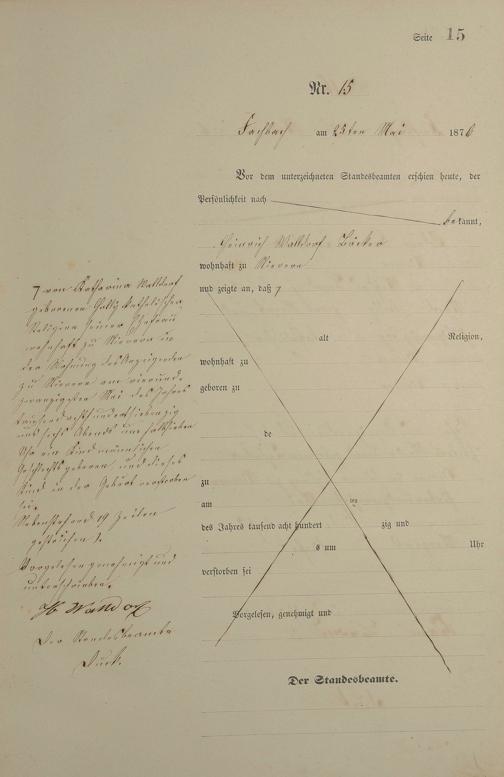 Seite 15
Nr. 15
Fachbach am 25ten Mai 1876
Vor dem unterzeichneten Standesbeamten erschien heute, der
Persönlichkeit nach
bekannt,
Heinrich Walldorf Bäcker
wohnhaft zu Nievern
und zeigte an, daß 7
alt Religion,
wohnhaft zu
geboren zu
de
zu
am
des Jahres tausend acht hundert zig und
s um Uhr
verstorben sei
Vorgelesen, genehmigt und
Der Standesbeamte.
7 von Katharina Walldorf
geborenen katholischer
Religion seiner Ehefrau
wohnhaft zu Nievern in
der Wohnung des Anzeigenden
zu Nievern am vierund-
zwanzigsten Mai des Jahres
tausendachthundertsiebenzig
und sechs Abends um halbsieben
Uhr ein Kind männlichen
Geschlechts geboren, und dieses
Kind in der Geburt verstorben
sei.
Nebenstehend 19 Zeilen
gestrichen
Vorgelesen genehmigt und
unterschrieben.
H Walldorf
Der Standesbeamte